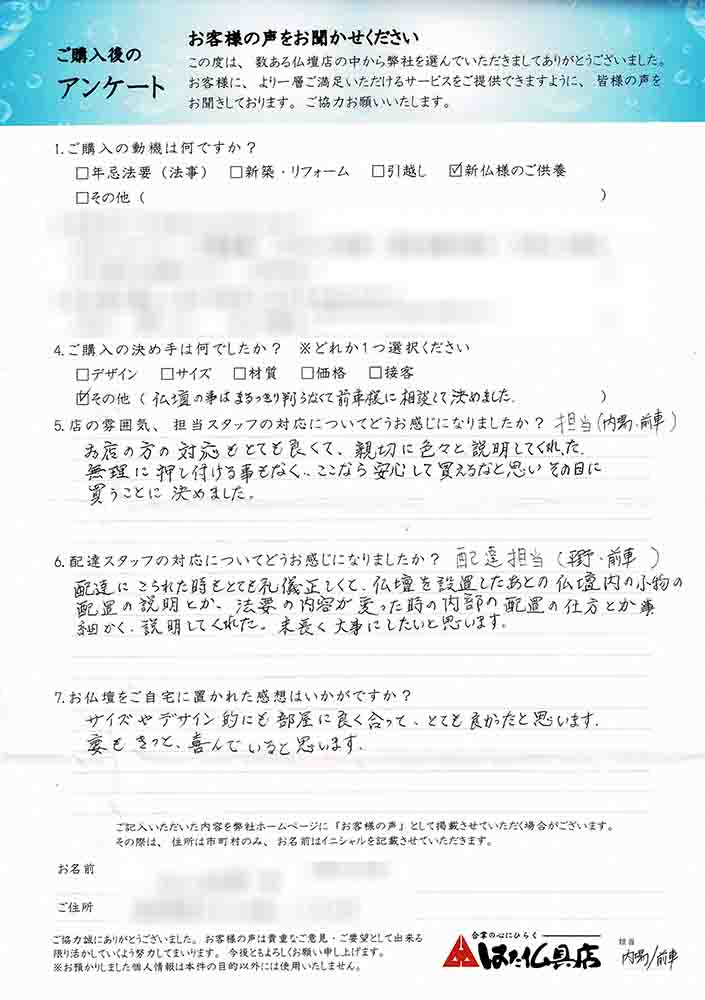 ご購入後の
アンケート
お客様の声をお聞かせください
この度は、数ある仏壇店の中から弊社を選んでいただきましてありがとうございました。
お客様に、より一層ご満足いただけるサービスをご提供できますように、皆様の声を
お聞きしております。ご協力お願いいたします。
1.ご購入の動機は何ですか？
□年忌法要（法事） □新築・リフォーム □引越し ☑新仏様のご供養
□その他（ ）
4.ご購入の決め手は何でしたか？ ※どれか1つ選択ください
□デザイン □サイズ □材質 □価格 □接客
☑その他（仏壇の事はまるっきり判らなくて前車様に相談して決めました. ）
5.店の雰囲気、担当スタッフの対応についてどうお感じになりましたか？ 担当(内場・前車)
お店の方の対応もとても良くて、親切に色々と説明してくれた.
無理に押し付ける事もなく、ここなら安心して買えるなと思いその日に
買うことに決めました。
6.配達スタッフの対応についてどうお感じになりましたか？ 配達担当（平野・前車）
配達にこられた時もとても礼儀正しくて、仏壇を設置したあとの仏壇内の小物の
配置の説明とか、法要の内容が変った時の内部の配置の仕方とか
細かく、説明してくれた。末長く大事にしたいと思います。
7.お仏壇をご自宅に置かれた感想はいかがですか？
サイズやデザイン的にも部屋に良く合って、とても良かったと思います.
妻もきっと、喜んでいると思います.
ご記入いただいた内容を弊社ホームページに「お客様の声」として掲載させていただく場合がございます。
その際は、住所は市町村のみ、お名前はイニシャルを記載させていただきます。
お名前
ご住所
ご協力誠にありがとうございました。お客様の声は貴重なご意見・ご要望として出来る
限り活かしていくよう努力してまいります。今後ともよろしくお願い申し上げます。
※お預かりしました個人情報は本件の目的以外には使用いたしません。
合掌の心にひらく
はた仏具店
担当
内場/前車